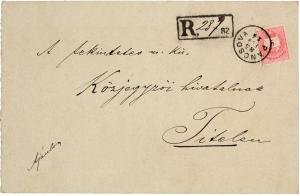 R. 289 82
PANCSOVA
A tekintetes m. kir.
Közjegyzői hivatalnak
Titelen
Ajánlva